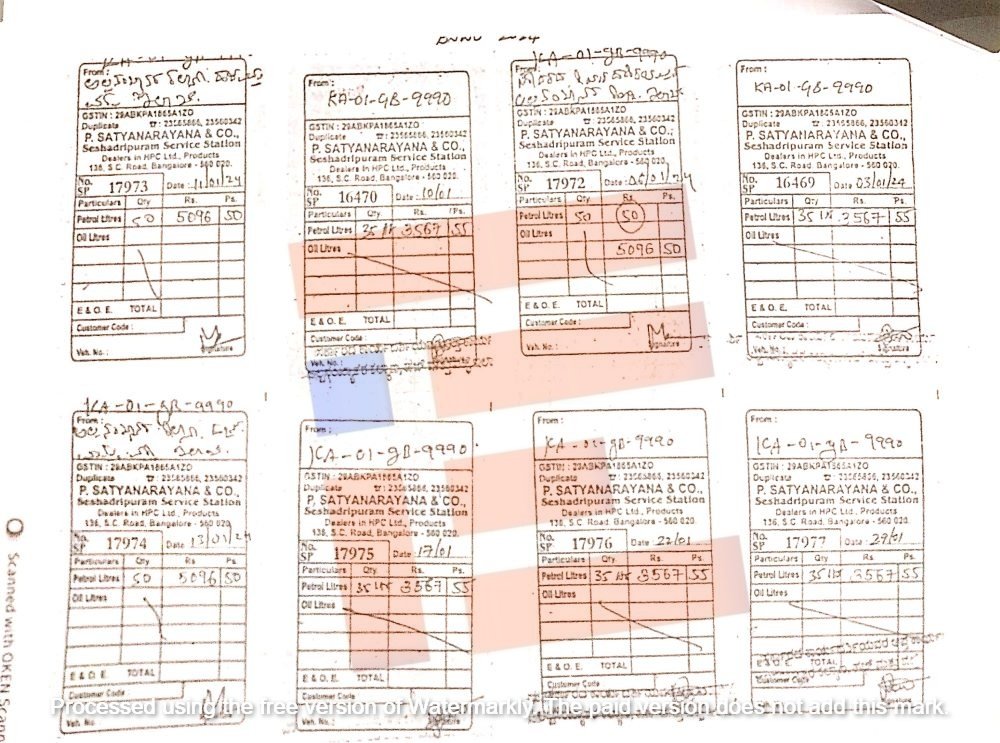 KA-01-GB-9990
From :
GSTIN : 29ABKPA1865A1ZO
Duplicate ☎ : 23565866, 23560342
P. SATYANARAYANA & CO.,
Seshadripuram Service Station
Dealers in HPC Ltd., Products
136, S.C. Road, Bangalore - 560 020.
No. SP 17973 Date : 11/01/24
Particulars Qty Rs. Ps.
Petrol Litres 50 5096 50
Oil Litres
E & O. E. TOTAL
Customer Code :
Veh. No. : Signature
From :
KA-01-GB-9990
GSTIN : 29ABKPA1865A1ZO
Duplicate ☎ : 23565866, 23560342
P. SATYANARAYANA & CO.,
Seshadripuram Service Station
Dealers in HPC Ltd., Products
136, S.C. Road, Bangalore - 560 020.
No. SP 16470 Date : 10/01
Particulars Qty Rs. Ps.
Petrol Litres 35 Ltr 3567 55
Oil Litres
E & O. E. TOTAL
Customer Code :
Veh. No. :
KA-01-GB-9990
From :
GSTIN : 29ABKPA1865A1ZO
Duplicate ☎ : 23565866, 23560342
P. SATYANARAYANA & CO.,
Seshadripuram Service Station
Dealers in HPC Ltd., Products
136, S.C. Road, Bangalore - 560 020.
No. SP 17972 Date : 06/01/24
Particulars Qty Rs. Ps.
Petrol Litres 50 50
Oil Litres
5096 50
E & O. E. TOTAL
Customer Code :
Veh. No. : Signature
From :
KA-01-GB-9990
GSTIN : 29ABKPA1865A1ZO
Duplicate ☎ : 23565866, 23560342
P. SATYANARAYANA & CO.,
Seshadripuram Service Station
Dealers in HPC Ltd., Products
136, S.C. Road, Bangalore - 560 020.
No. SP 16469 Date 03/01/24
Particulars Qty Rs. Ps.
Petrol Litres 35 Ltr 3567 55
Oil Litres
E & O. E. TOTAL
Customer Code :
Veh. No. : Signature
KA-01-GB-9990
From :
GSTIN : 29ABKPA1865A1ZO
Duplicate ☎ : 23565866, 23560342
P. SATYANARAYANA & CO.,
Seshadripuram Service Station
Dealers in HPC Ltd., Products
136, S.C. Road, Bangalore - 560 020.
No. SP 17974 Date 13/01/24
Particulars Qty Rs. Ps.
Petrol Litres 50 5096 50
Oil Litres
E & O. E. TOTAL
Customer Code
Veh. No.
From :
KA-01-GB-9990
GSTIN : 29ABKPA1865A1ZO
Duplicate ☎ : 23565866, 23560342
P. SATYANARAYANA & CO.,
Seshadripuram Service Station
Dealers in HPC Ltd., Products
136, S.C. Road, Bangalore - 560 020.
No. SP 17975 Date : 17/01
Particulars Qty Rs. Ps.
Petrol Litres 35 Ltr 3567 55
Oil Litres
E & O. E. TOTAL
Customer Code
Veh. No. :
From :
KA-01-GB-9990
GSTIN : 29ABKPA1865A1ZO
Duplicate ☎ : 23565866, 23560342
P. SATYANARAYANA & CO.,
Seshadripuram Service Station
Dealers in HPC Ltd., Products
136, S.C. Road, Bangalore - 560 020.
No. SP 17976 Date : 22/01
Particulars Qty Rs. Ps.
Petrol Litres 35 Ltr 3567 55
Oil Litres
E & O. E. TOTAL
Customer Code
From :
KA-01-GB-9990
GSTIN : 29ABKPA1865A1ZO
Duplicate ☎ : 23565866, 23560342
P. SATYANARAYANA & CO.,
Seshadripuram Service Station
Dealers in HPC Ltd., Products
136, S.C. Road, Bangalore - 560 020.
No. SP 17977 Date : 29/01
Particulars Qty Rs. Ps.
Petrol Litres 35 Ltr 3567 55
Oil Litres
E & O. E. TOTAL
Customer Code
Scanned with OKEN Scann
Processed using the free version of Watermarkly. The paid version does not add this mark.